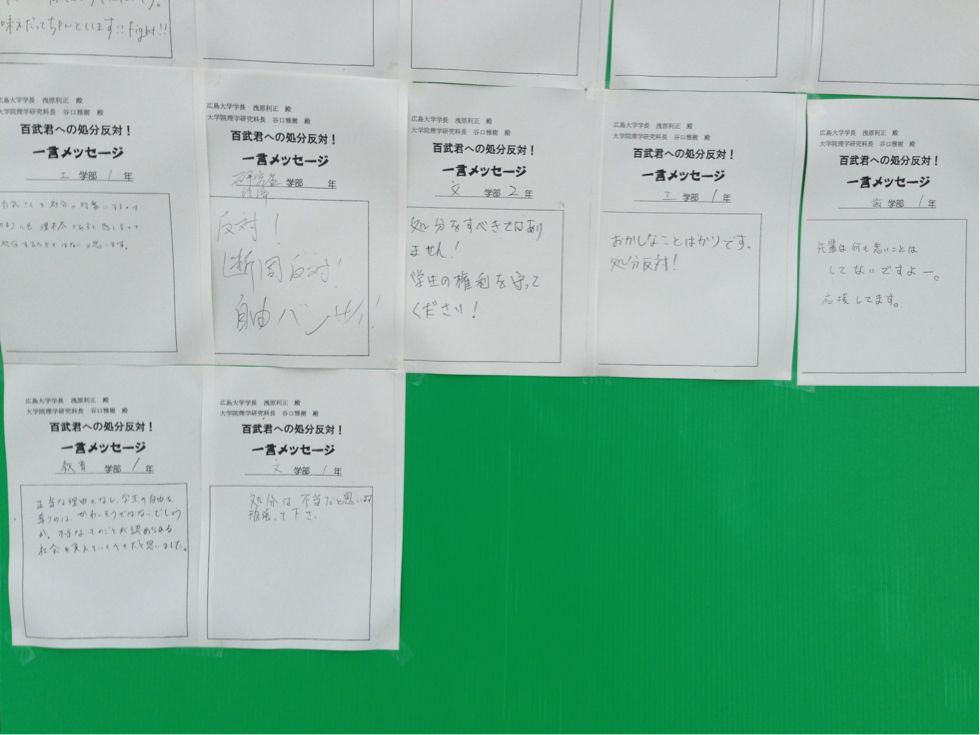 味えだってちゃんといます!!Fight!!
広島大学学長 浅原利正 殿
大学院理学研究科長 谷口雅樹 殿
百武君への処分反対!
一言メッセージ
工 学部 1 年
処分の対象にするだけ
広島大学学長 浅原利正 殿
大学院理学研究科長 谷口雅樹 殿
百武君への処分反対!
一言メッセージ
学部 年
反対!
断固反対!
自由バンザイ!
広島大学学長 浅原利正 殿
大学院理学研究科長 谷口雅樹 殿
百武君への処分反対!
一言メッセージ
文 学部 2 年
処分をすべきではあり
ません!
学生の権利を守って
ください!
広島大学学長 浅原利正 殿
大学院理学研究科長 谷口雅樹 殿
百武君への処分反対!
一言メッセージ
工 学部 1 年
おかしなことばかりです。
処分反対!
広島大学学長 浅原利正 殿
大学院理学研究科長 谷口雅樹 殿
百武君への処分反対!
一言メッセージ
歯 学部 1 年
先輩は何も悪いことは
してないですよー。
応援してます。
広島大学学長 浅原利正 殿
大学院理学研究科長 谷口雅樹 殿
百武君への処分反対!
一言メッセージ
教育 学部 1 年
正当な理由もなし、学生の自由を
奪うのは、かわいそうではないでしょう
か。不当なそのことが認められる
社会を変えていくべきだと思いました。
広島大学学長 浅原利正 殿
大学院理学研究科長 谷口雅樹 殿
百武君への処分反対!
一言メッセージ
文 学部 1 年
処分は不当だと思います
頑張って下さい